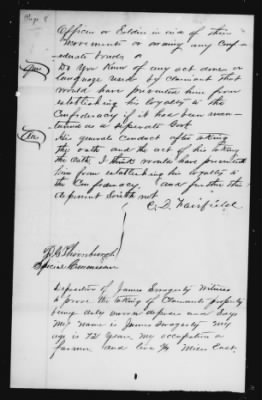 Page 8
Officer or Soldier in aid of their
movements or owning any Con-
federate bonds
Do you know of any act done or
language used by claimant that
would have prevented him from
establishing his loyalty to the
Confederacy if it had been main-
tained as a separate Govt
His general conduct after taking
the oath and the act of his taking
the oath I think would have prevented
him from establishing his loyalty to
the Confederacy. and further this
deponent saith not
C. D. Fairfield
Special Commissioner
Deposition of James Swagerty witness
to prove the taking of Claimants property
being duly sworn deposes and says
My name is James Swagerty my
age is 72 years, my occupation a
farmer and live 1/4 Mile East.